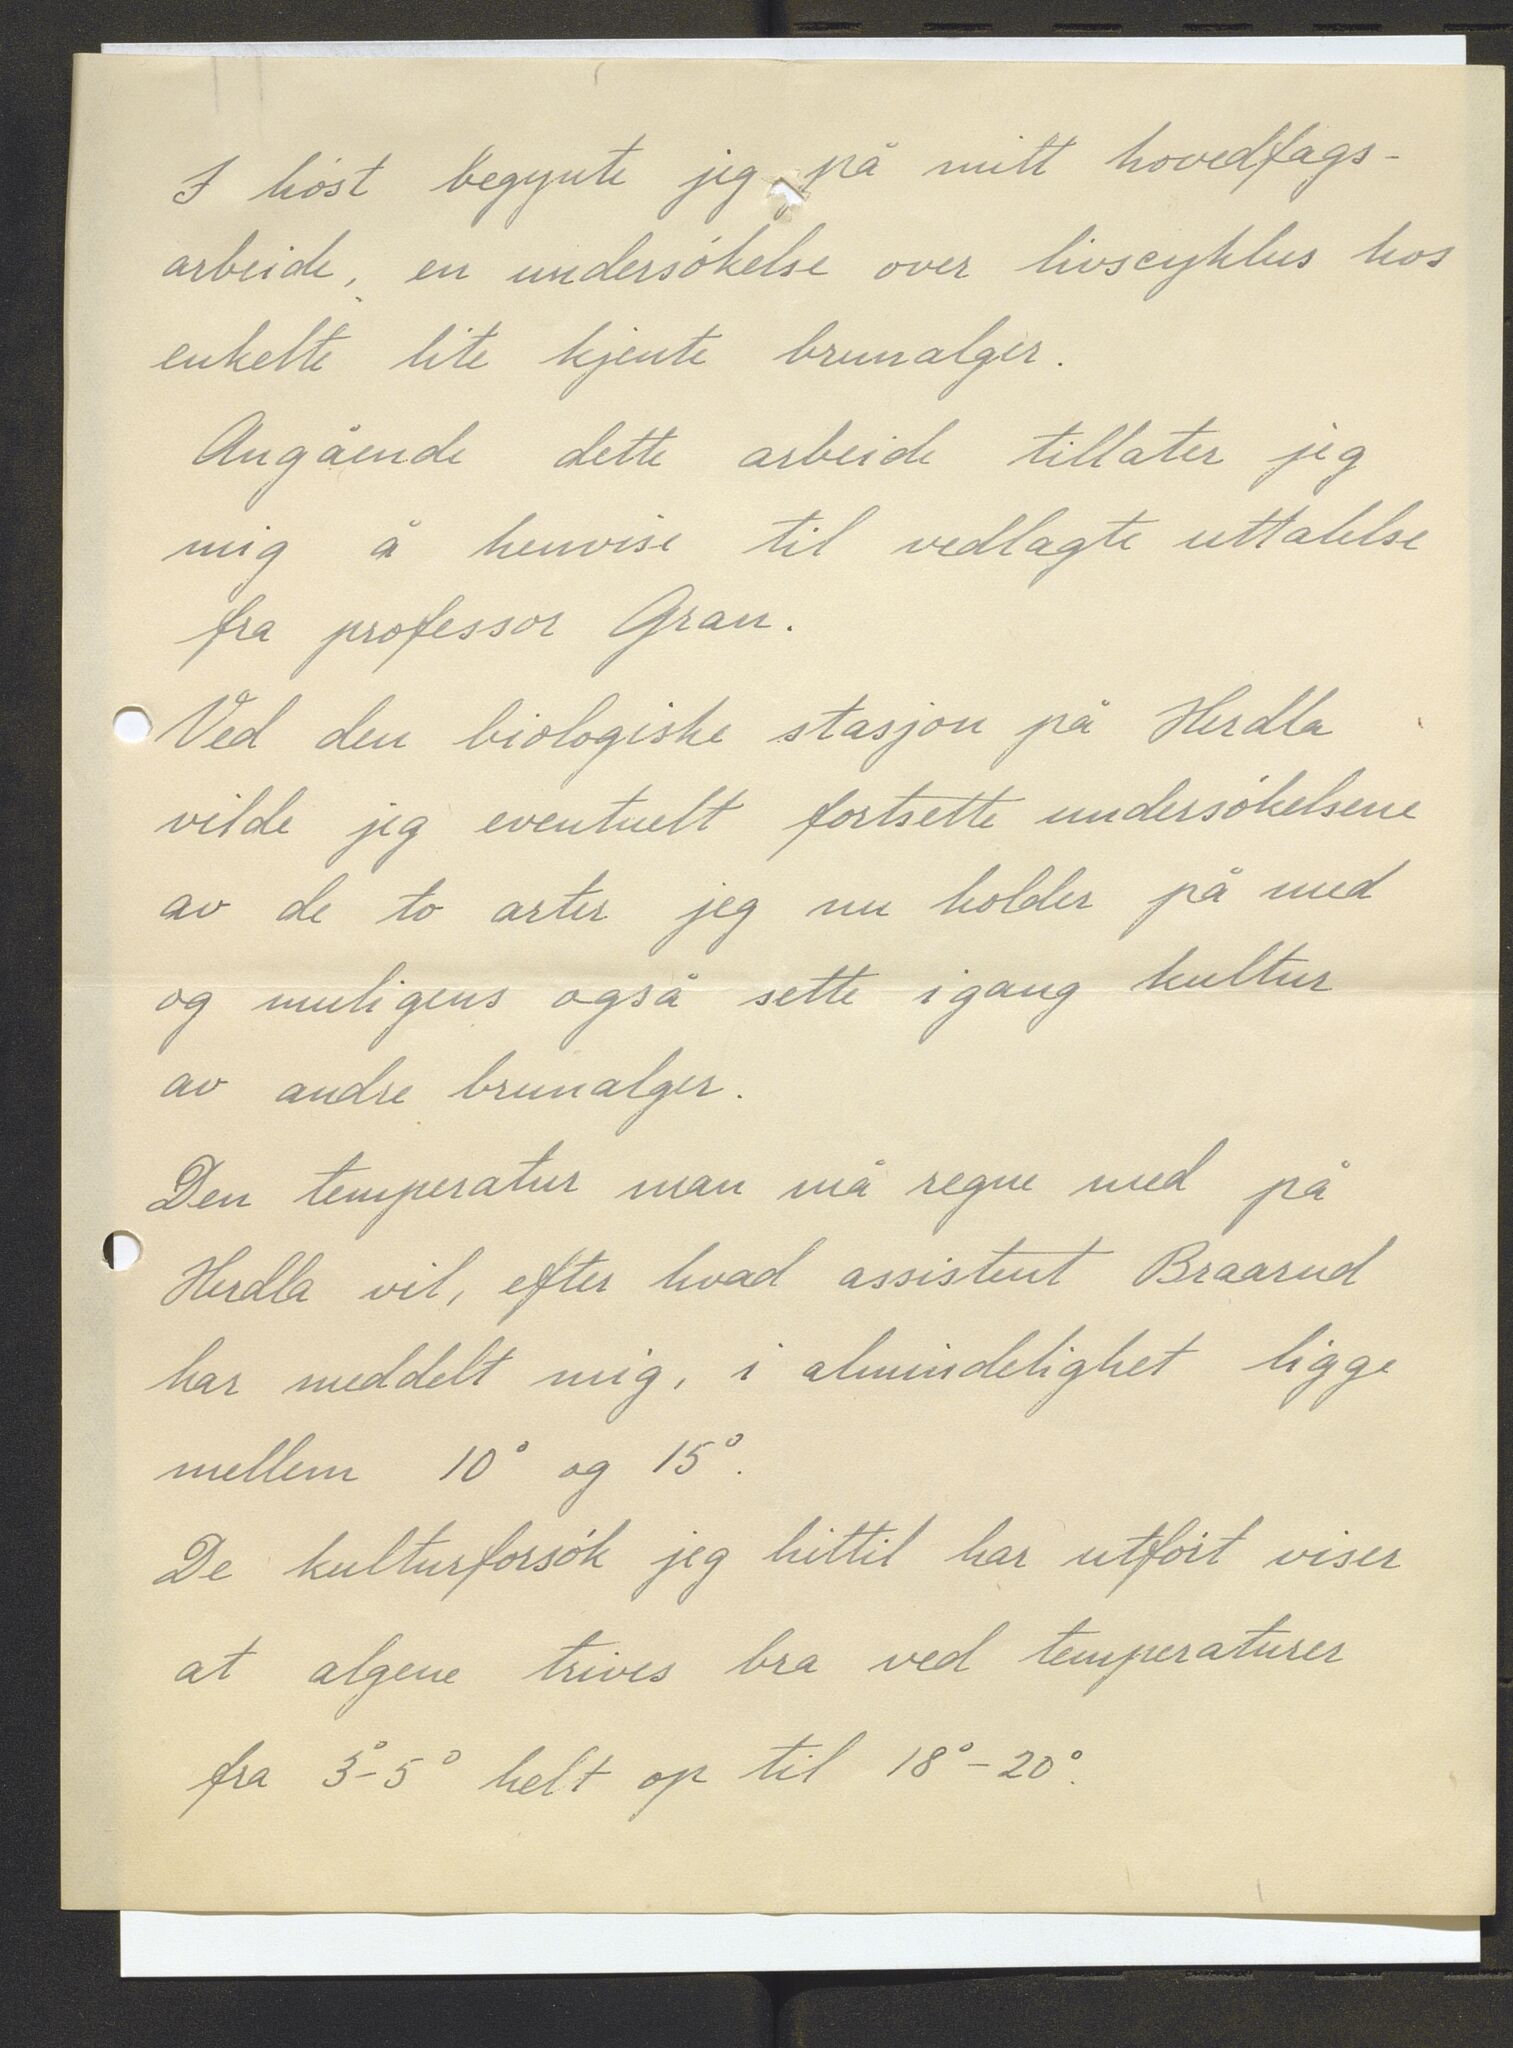 I høst begynte jeg på mitt hovedfags-
arbeide, en undersøkelse over livscyklus hos
enkelte lite kjente brunalger.
Angående dette arbeide tillater jeg
mig å henvise til vedlagte uttalelse
fra professor Gran.
Ved den biologiske stasjon på Herdla
vilde jeg eventuelt fortsette undersøkelsene
av de to arter jeg nu holder på med
og muligens også sette igang kultur
av andre brunalger.
Den temperatur man må regne med på
Herdla vil, efter hvad assistent Braarud
har meddelt mig, i almindelighet ligge
mellem 10° og 15°.
De kulturforsøk jeg hittil har utført viser
at algene trives bra ved temperaturer
fra 3°-5° helt op til 18°-20°.